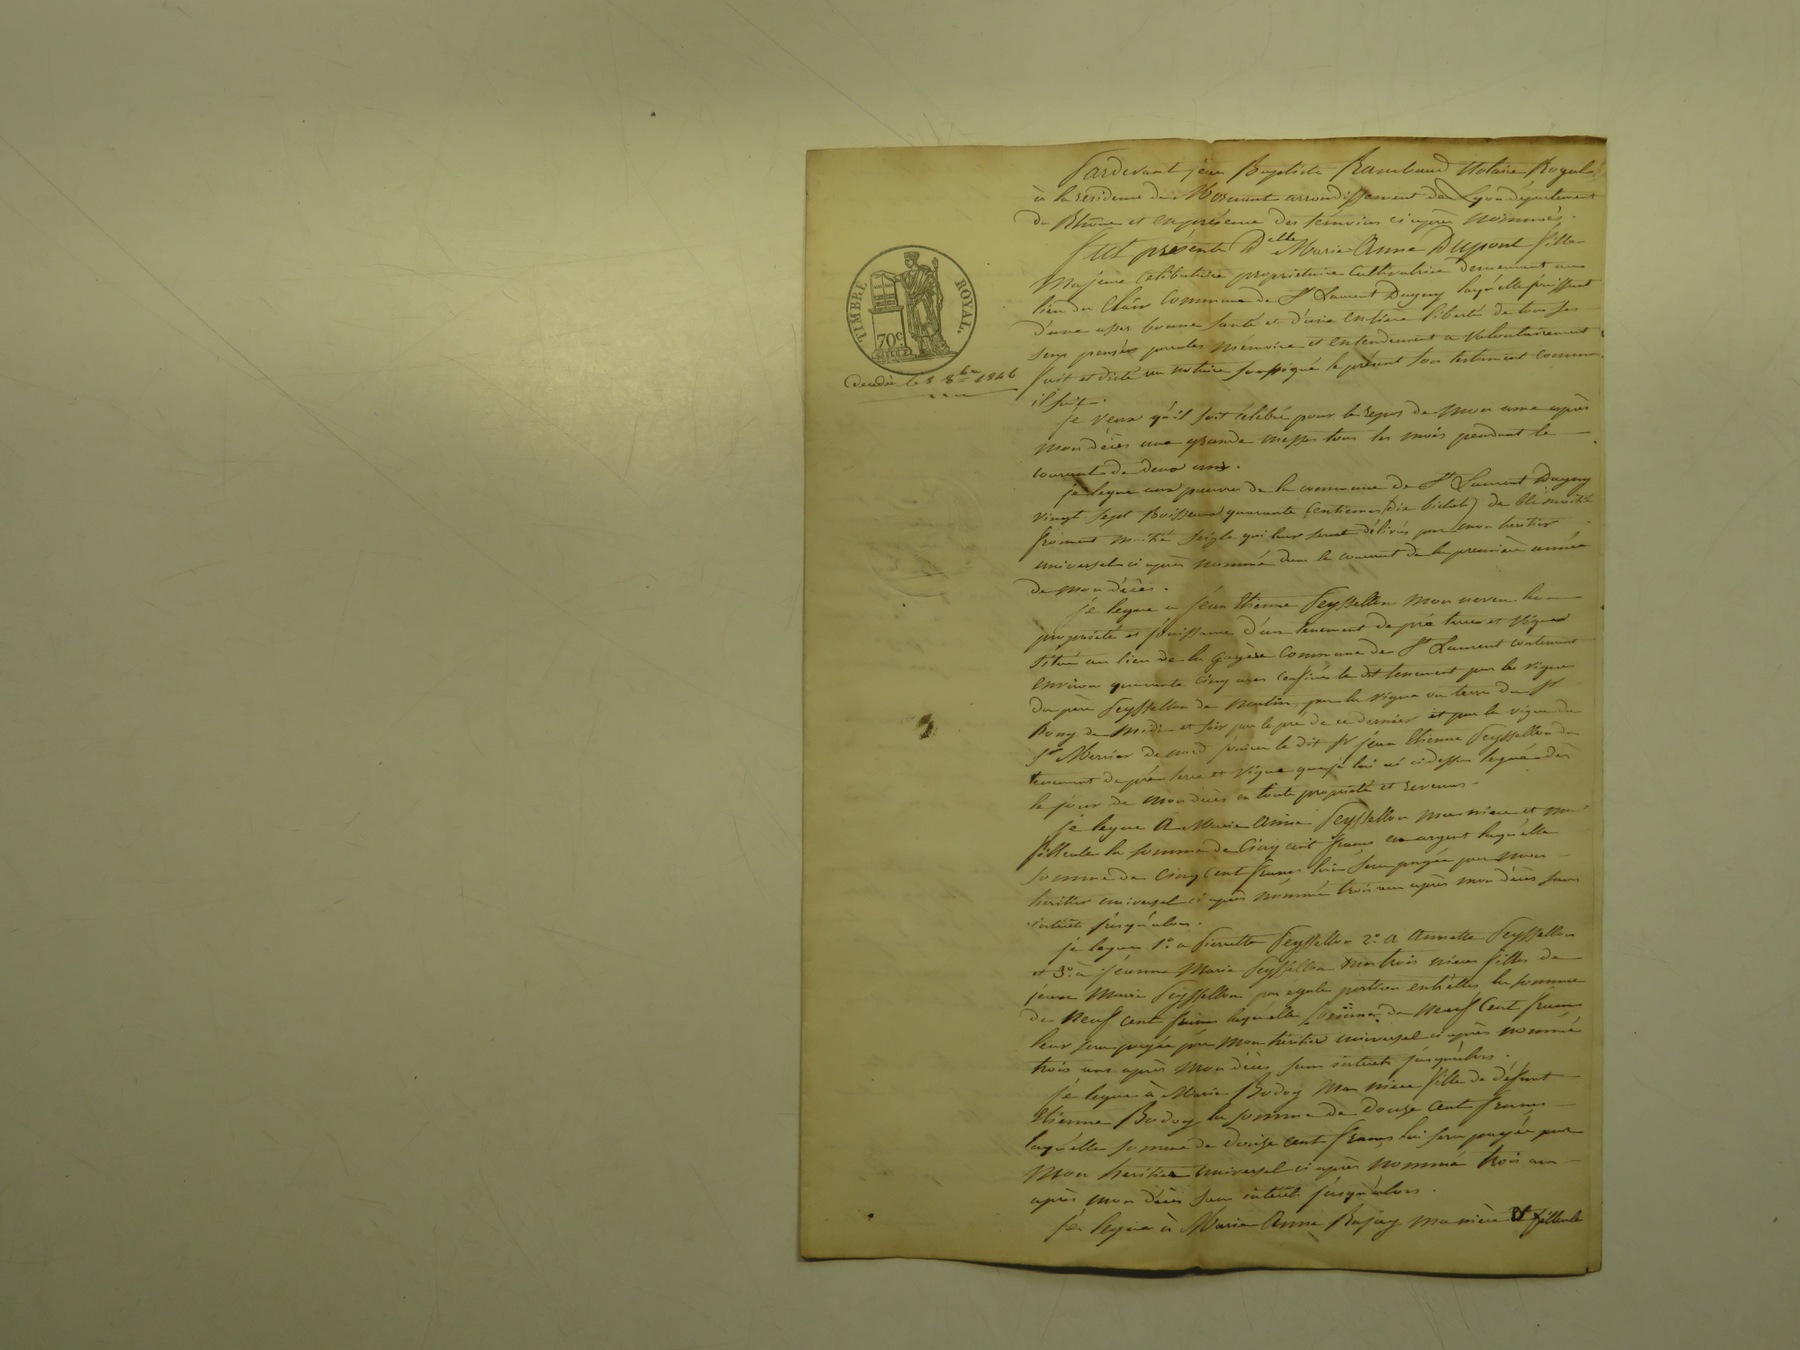 Pardevant jean Baptiste Rambaud Notaire Royal
à la résidence de Mornant arrondissement de Lyon département
du Rhône et en présence des témoins ci après nommés.
Fut présente Delle Marie Anne Dupont fille
Majeure Célibataire propriétaire Cultivatrice demeurant au
lieu du Clair Commune de St Laurent Dagny laquelle jouissant
d'une assez bonne santé et d'une entière liberté de tous ses
sens pensées paroles mémoire et entendement a volontairement
fait et dicté au notaire soussigné le présent son testament comme
il suit.
TIMBRE ROYAL.
70c
Décédée le 8 8bre 1846
je veux qu'il soit célébré pour le repos de mon ame après
mon décès une grande messe tous les mois pendant le
courant de deux ans.
je legue aux pauvres de la commune de St Laurent Dagny
vingt sept Boisseaux quarante centiemes (dix bichets) de blé moitié
froment moitié seigle qui leur seront délivrés par mon heritier
universel ci après nommé dans le courant de la première année
de mon décès.
je legue a jean Etienne Peyssellon mon neveu la
propriété et jouissance d'un tenement de pré terre et vigne
situé au lieu de la Gagère Commune de St Laurent contenant
environ quarante cinq ares confiné le dit tenement par les vignes
du père Peyssellon de matin, par la vigne ou terre du Sr
Bony de midi et soir par le pré de ce dernier et par la vigne du
Sr Mercier de nord jouira le dit Sr jean Etienne Peyssellon du
tenement de pré terre et vigne que je lui ai ci dessus legué dès
le jour de mon décès en toute propriété et revenus.
je legue a Marie Anne Peyssellon ma niece et ma
filleule la somme de Cinq cent francs en argent laquelle
somme de Cinq Cent francs lui sera payée par mon
heritier universel ci après nommé trois ans après mon décès sans
intérêts jusqu'alors.
je legue 1° a Pierrette Peyssellon 2° a Annette Peyssellon
et 3° à jeanne Marie Peyssellon mes trois nieces filles de
jean Marie Peyssellon par egale portion entr'elles la somme
de neuf cent francs laquelle somme de neuf Cent francs
leur sera payée par mon héritier universel ci après nommé
trois ans après mon décès sans intérêts jusqu'alors.
je legue à Marie Bodoy ma niece fille de défunt
Etienne Bodoy la somme de douze Cent francs
laquelle somme de douze cent francs lui sera payée par
mon heritier universel ci après nommé trois ans
après mon décès sans intérêts jusqu'alors.
je legue à Marie Anne Bajay ma nièce et filleule